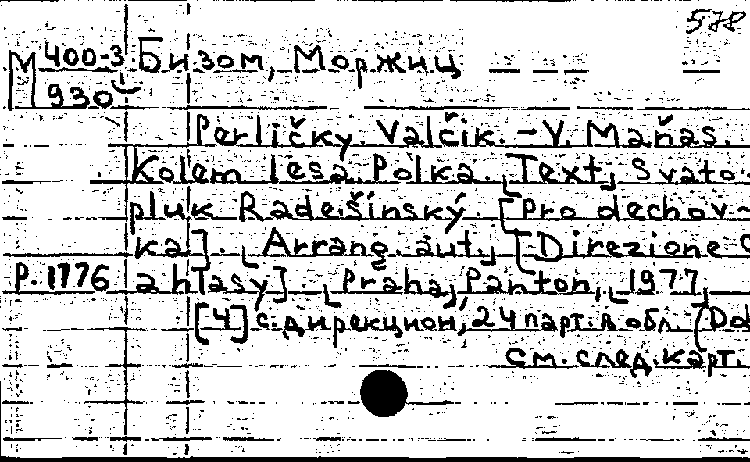 578
М 400-3 Бизом, Моржиц
930
Perličky. Valčik. – V. Maňas.
Kolem lesa. Polka. Text Svato-
pluk Radešínský. [Pro dechov-
ka]. Arrang. aut. [Direzione C
P. 1776 a hlasy]. Praha, Panton, 1977,
[4] с. дирекцион, 24 парт. в обл. (Do
см. след. карт.